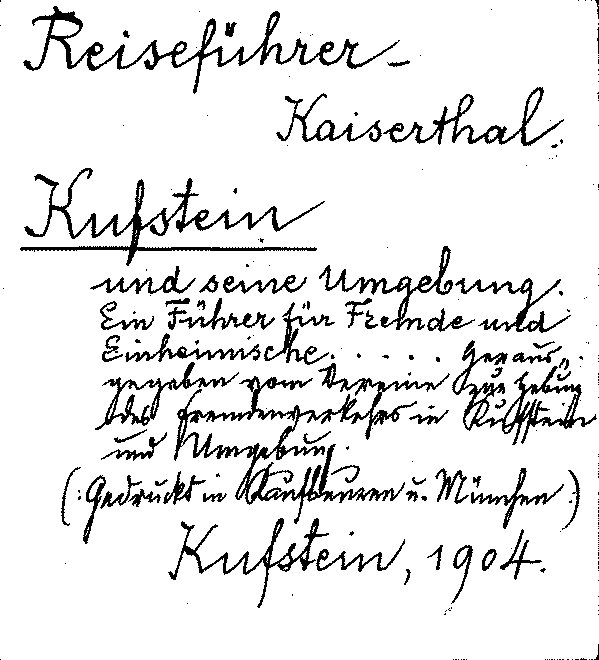 Reiseführer-
Kaiserthal.
Kufstein
und seine Umgebung.
Ein Führer für Fremde und
Einheimische. . . . . Heraus„
gegeben vom Vereine zur Hebung
des Fremdenverkehrs in Kufstein
und Umgebung.
(: Gedruckt in Kaufbeuren u. München :)
Kufstein, 1904.